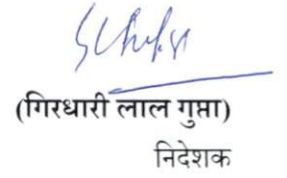 (गिरधारी लाल गुप्ता)
निदेशक